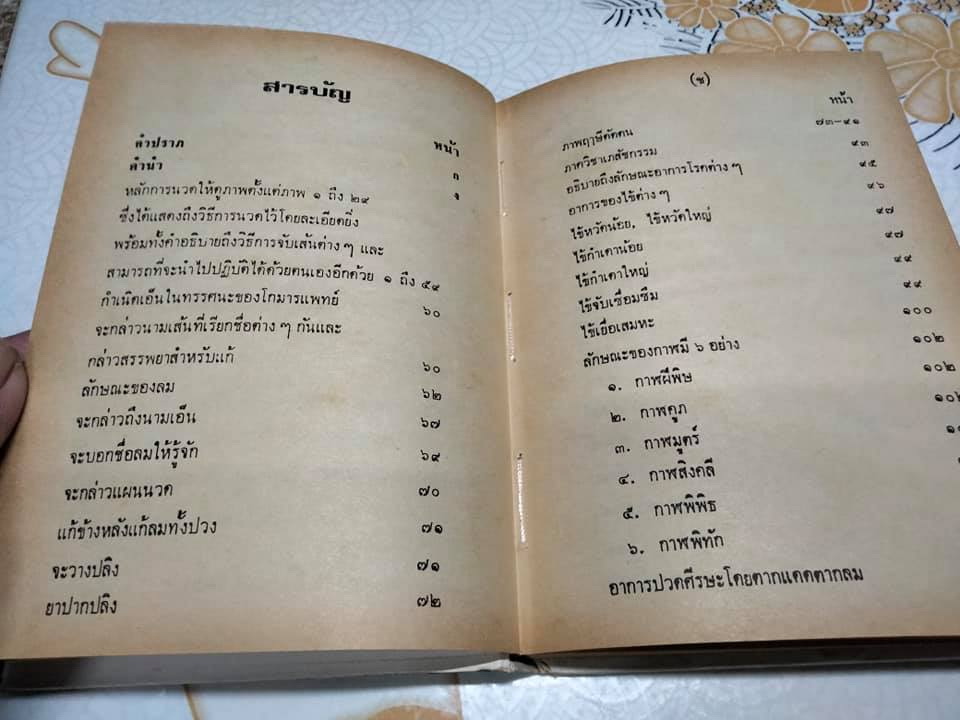 สารบัญ
หน้า
คำปรารภ ก
คำนำ ง
หลักการนวดให้ดูภาพตั้งแต่ภาพ ๑ ถึง ๒๙
ซึ่งได้แสดงถึงวิธีการนวดไว้โดยละเอียดยิ่ง
พร้อมทั้งคำอธิบายถึงวิธีการจับเส้นต่าง ๆ และ
สามารถที่จะนำไปปฏิบัติได้ด้วยตนเองอีกด้วย ๑ ถึง ๕๙
กำเนิดเอ็นในทรรศนะของโกมารแพทย์ ๖๐
จะกล่าวนามเส้นที่เรียกชื่อต่าง ๆ กันและ
กล่าวสรรพยาสำหรับแก้ ๖๐
ลักษณะของลม ๖๒
จะกล่าวถึงนามเอ็น ๖๗
จะบอกชื่อลมให้รู้จัก ๖๙
จะกล่าวแผนนวด ๗๐
แก้ข้างหลังแก้ลมทั้งปวง ๗๑
จะวางปลิง ๗๑
ยาปากปลิง ๗๒
(ช)
หน้า
ภาพฤๅษีดัดตน ๗๓-๙๑
ภาควิชาเภสัชกรรม ๙๓
อธิบายถึงลักษณะอาการโรคต่าง ๆ ๙๕
อาการของไข้ต่าง ๆ ๙๖
ไข้หวัดน้อย, ไข้หวัดใหญ่ ๙๗
ไข้กำเดาน้อย ๙๗
ไข้กำเดาใหญ่ ๙๙
ไข้จับเชื่อมซึม ๙๙
ไข้เยื่อเสมหะ ๑๐๐
ลักษณะของกาฬมี ๖ อย่าง ๑๐๒
๑. กาฬผีพิษ ๑๐๒
๒. กาฬคูถ
๓. กาฬมูตร์
๔. กาฬสิงคลี
๕. กาฬพิพิธ
๖. กาฬพิทัก
อาการปวดศีรษะโดยตากแดดตากลม